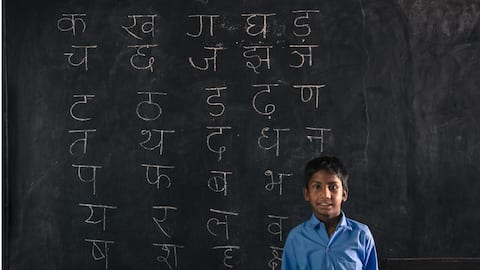 क ख ग घ ङ
च छ ज झ ञ
ट ठ ड ढ़ ण
त थ द ध न
प फ ब भ
य र ल व
ष श ह क्ष